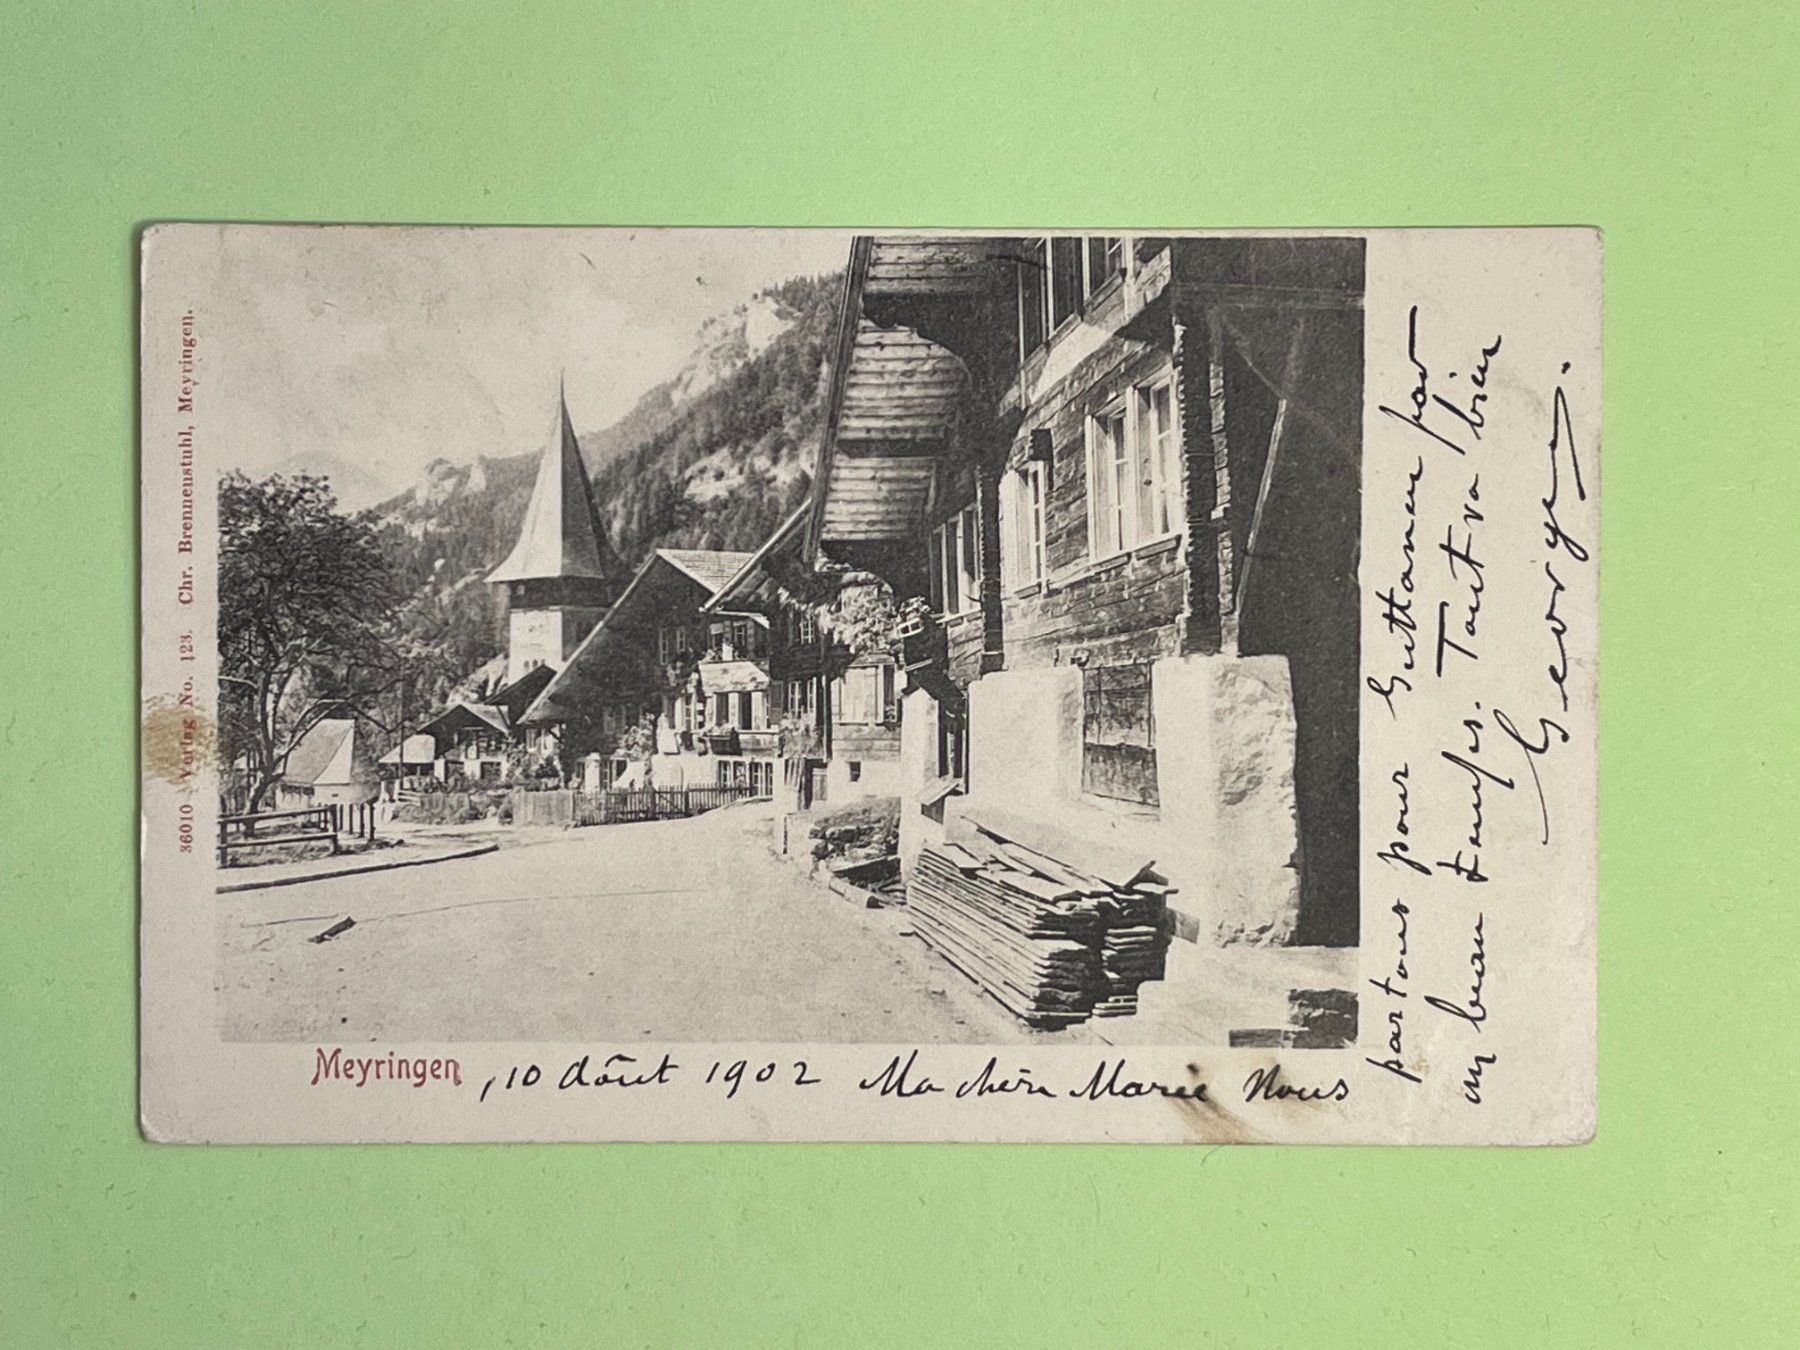 36010 Verlag No. 123. Chr. Brennenstuhl, Meyringen.
Meyringen, 10 août 1902 Ma chère Marie Nous
partons pour Guttanen par
un beau temps. Tout va bien
George.